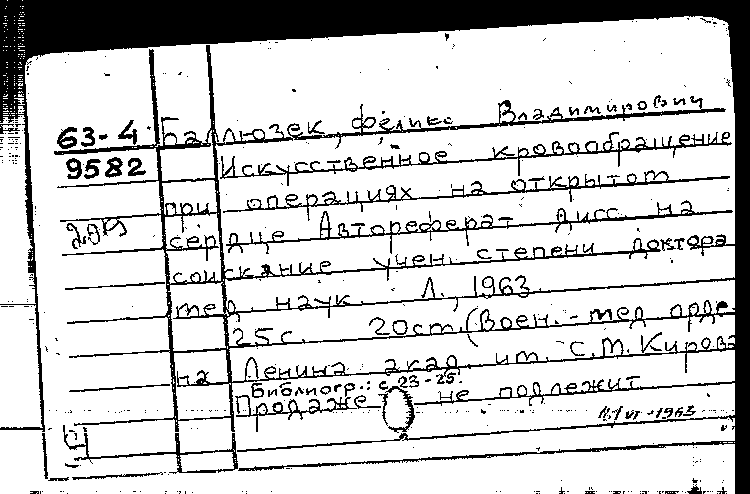 63-4 Баллюзек, Феликс Владимирович
9582 Искусственное кровообращение
при операциях на открытом
сердце Автореферат дисс. на
соискание учен. степени доктора
мед. наук. Л., 1963.
25 с. 20 см. (Воен.-мед орде-
на Ленина акад. им. С.М. Кирова
Библиогр.: с. 23-25.
Продаже не подлежит
VI-1963